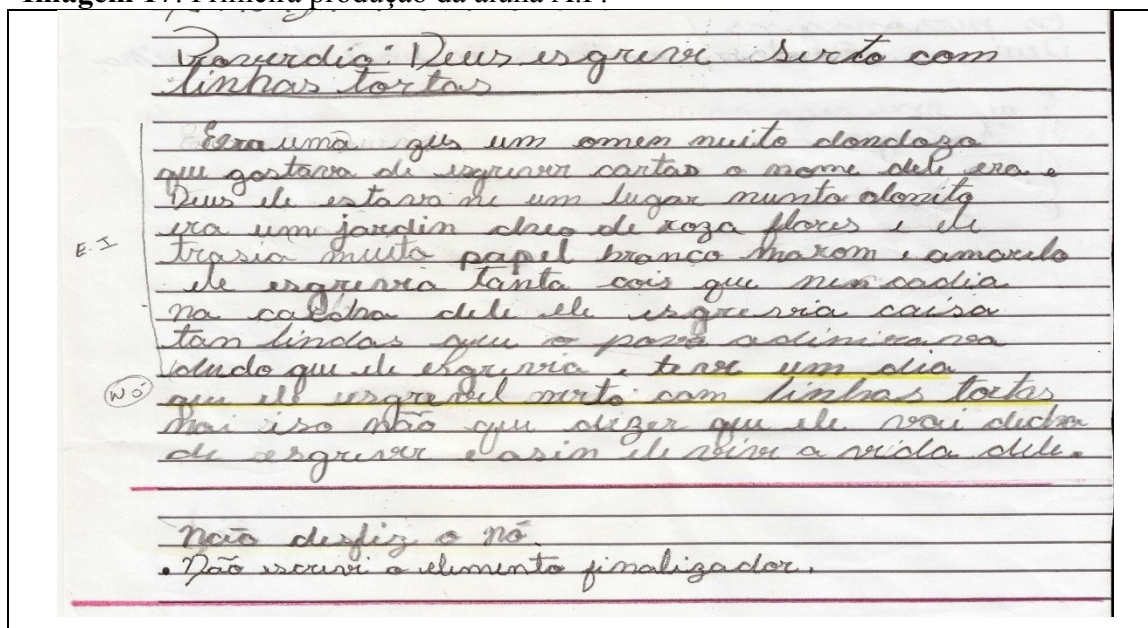 Proverdio: Deus esgreve serto com
linhas tortas
Erra uma zus um omen muito dondozo
que gostava de esgrever cartas o nome dele era e
Deus ele estava ne um lugar munto donito
era um jardin cheo de roza flores e ele
E.I
trasia muito papel branco marom e amarelo
ele esgrevia tanta cois que nem cadia
na dele ele esgrevia caisa
tan lindas que o adimirava
dudo que ele esgrevia e teve um dia
NÓ
que ele esgrevel serto com linhas tortas
mai iso não que dizer que ele vai
de esgrever e asin ele vive a vida dele.
Não desfiz o nó.
. Não escrevi o elemento finalizador.